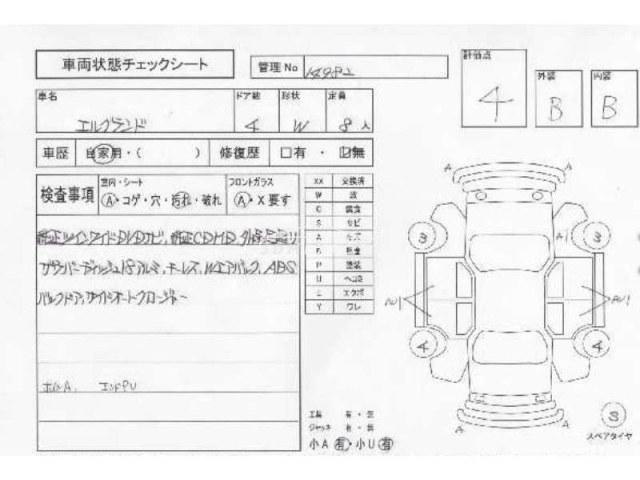 車両状態チェックシート
管理No
評価点
4
外装
B
内装
B
車名
エルグランド
ドア数
4
形状
W
定員
8人
車歴 自家用・( )
修復歴 □有・☑無
検査事項
室内・シート
A・コゲ・穴・汚れ・破れ
フロントガラス
A・X要す
純正ツインワイドDVDナビ、純正CDMD、
18アルミ、キーレス、Wエアバック、ABS
バックドア、サイドオートクロージャー
XX 交換済
W 波
C 腐食
S サビ
A キズ
P 塗装
U ヘコミ
E エクボ
Y ワレ
A
A
3
3
A1
AU1
AU1
4
4
A
A
工具 有・無
ジャッキ 有・無
小A有・小U有
3
スペアタイヤ